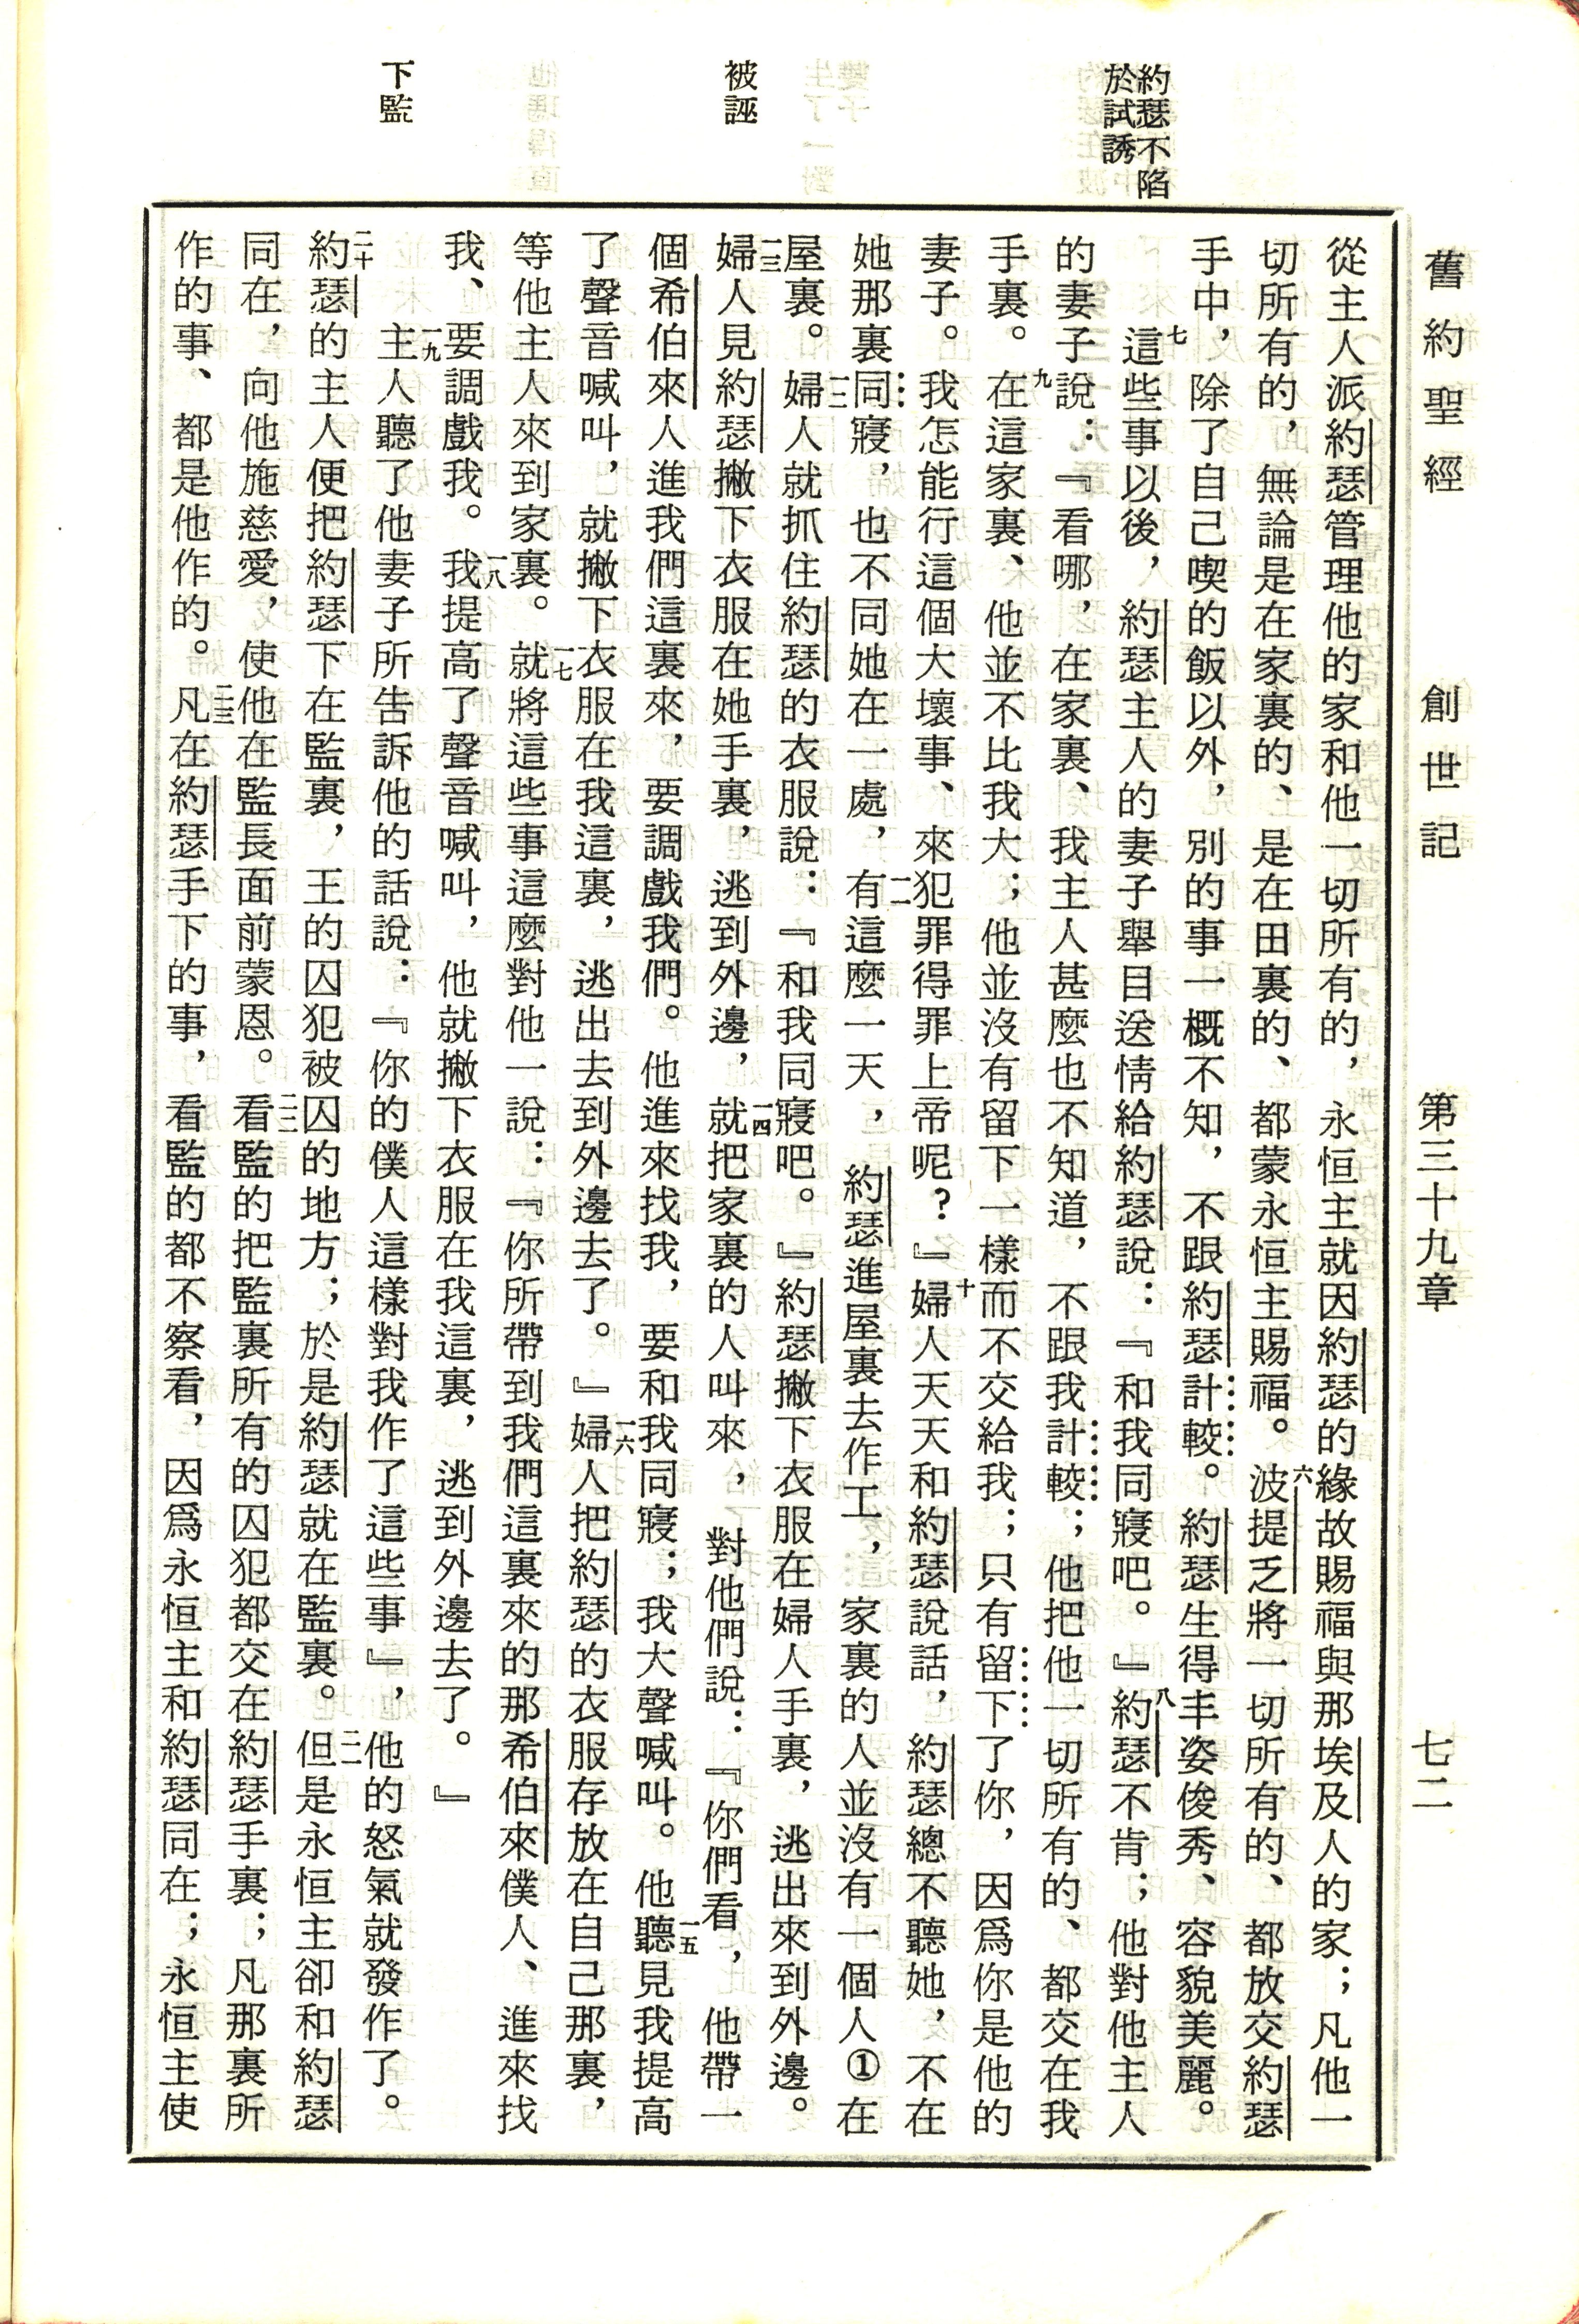 舊約聖經 創世記 第三十九章 七二
約瑟不陷
於試誘
被誣
下監
從主人派約瑟管理他的家和他一切所有的，永恒主就因約瑟的緣故賜福與那埃及人的家；凡他一
切所有的，無論是在家裏的、是在田裏的、都蒙永恒主賜福。六波提乏將一切所有的、都放交約瑟
手中，除了自己喫的飯以外，別的事一概不知，不跟約瑟計較。約瑟生得丰姿俊秀、容貌美麗。
七這些事以後，約瑟主人的妻子舉目送情給約瑟說：『和我同寢吧。』八約瑟不肯；他對他主人
的妻子說：『看哪，在家裏、我主人甚麼也不知道，不跟我計較；他把他一切所有的、都交在我
手裏。九在這家裏、他並不比我大；他並沒有留下一樣而不交給我；只有留下了你，因爲你是他的
妻子。我怎能行這個大壞事、來犯罪得罪上帝呢？』十婦人天天和約瑟說話，約瑟總不聽她，不在
她那裏同寢，也不同她在一處，一一有這麼一天，約瑟進屋裏去作工，家裏的人並沒有一個人①在
屋裏。一二婦人就抓住約瑟的衣服說：『和我同寢吧。』約瑟撇下衣服在婦人手裏，逃出來到外邊。
一三婦人見約瑟撇下衣服在她手裏，逃到外邊，一四就把家裏的人叫來，對他們說：『你們看，他帶一
個希伯來人進我們這裏來，要調戲我們。他進來找我，要和我同寢；我大聲喊叫。一五他聽見我提高
了聲音喊叫，就撇下衣服在我這裏，逃出去到外邊去了。』一六婦人把約瑟的衣服存放在自己那裏，
等他主人來到家裏。一七就將這些事這麼對他一說：『你所帶到我們這裏來的那希伯來僕人、進來找
我、要調戲我。一八我提高了聲音喊叫，他就撇下衣服在我這裏，逃到外邊去了。』
一九主人聽了他妻子所告訴他的話說：『你的僕人這樣對我作了這些事』，他的怒氣就發作了。
二十約瑟的主人便把約瑟下在監裏，王的囚犯被囚的地方；於是約瑟就在監裏。二一但是永恒主卻和約瑟
同在，向他施慈愛，使他在監長面前蒙恩。二二看監的把監裏所有的囚犯都交在約瑟手裏；凡那裏所
作的事、都是他作的。二三凡在約瑟手下的事，看監的都不察看，因爲永恒主和約瑟同在；永恒主使